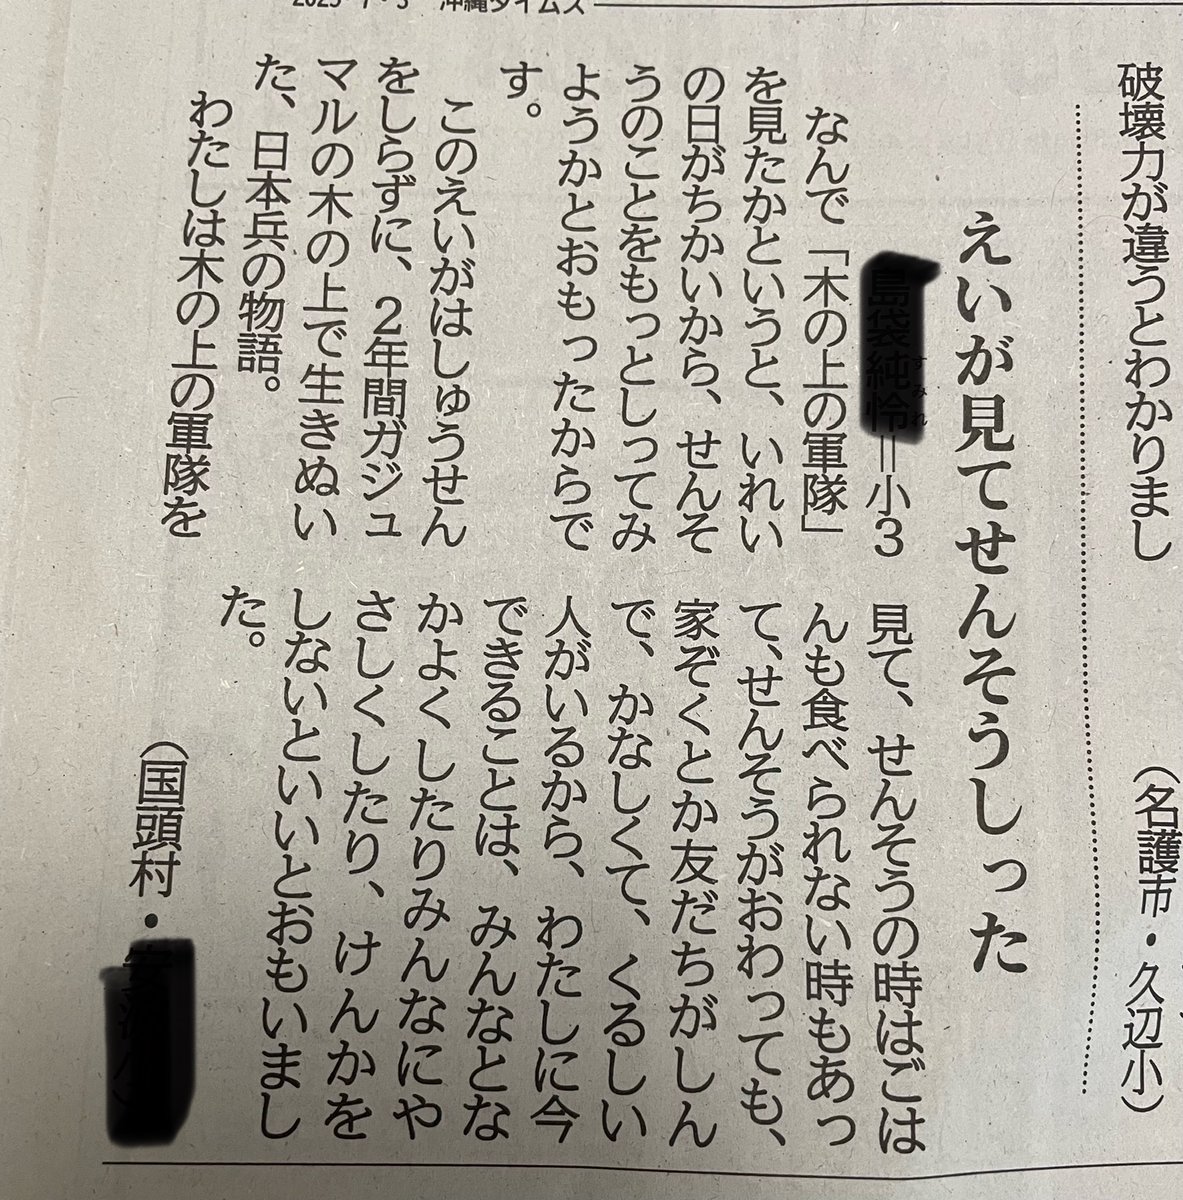 沖縄タイムス
破壊力が違うとわかりまし
（名護市・久辺小）
えいが見てせんそうしった
＝小３
なんで「木の上の軍隊」
を見たかというと、いれい
の日がちかいから、せんそ
うのことをもっとしってみ
ようかとおもったからで
す。
このえいがはしゅうせん
をしらずに、２年間ガジュ
マルの木の上で生きぬい
た、日本兵の物語。
わたしは木の上の軍隊を
見て、せんそうの時はごは
んも食べられない時もあっ
て、せんそうがおわっても、
家ぞくとか友だちがしん
で、かなしくて、くるしい
人がいるから、わたしに今
できることは、みんなとな
かよくしたりみんなにや
さしくしたり、けんかを
しないといいとおもいまし
た。
（国頭村・